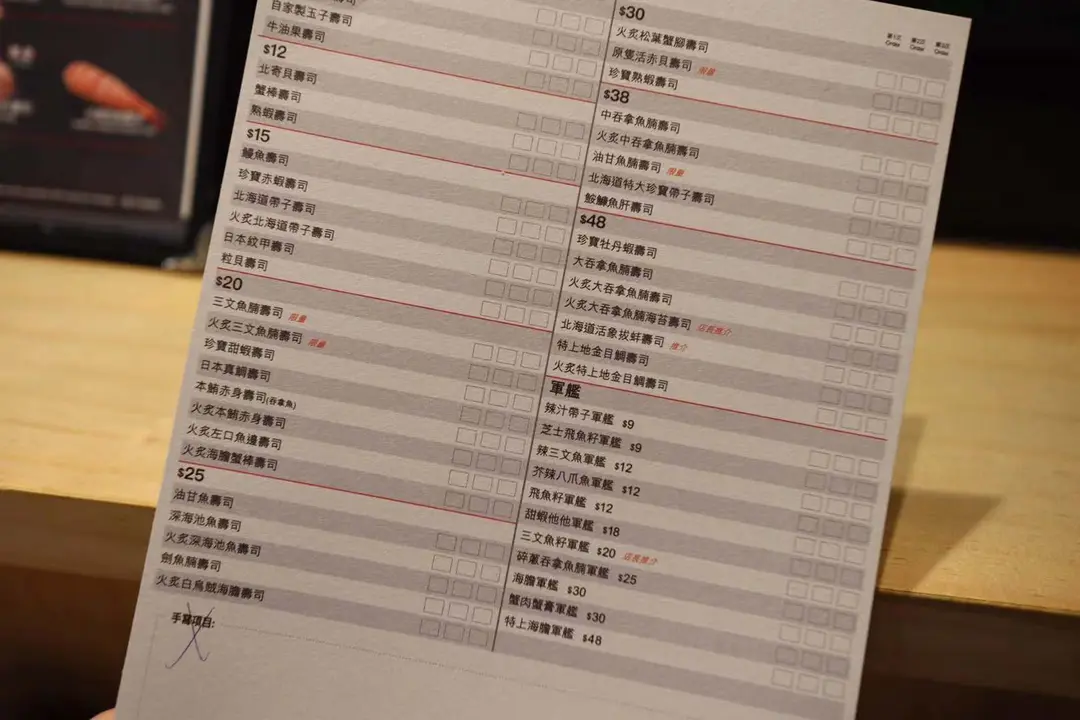 自家製玉子壽司
牛油果壽司
$12
北寄貝壽司
蟹棒壽司
熟蝦壽司
$15
鰻魚壽司
珍寶赤蝦壽司
北海道帶子壽司
火炙北海道帶子壽司
日本紋甲壽司
粒貝壽司
$20
三文魚腩壽司 限量
火炙三文魚腩壽司 限量
珍寶甜蝦壽司
日本真鯛壽司
本鮪赤身壽司(吞拿魚)
火炙本鮪赤身壽司
火炙左口魚邊壽司
火炙海膽蟹棒壽司
$25
油甘魚壽司
深海池魚壽司
火炙深海池魚壽司
劍魚腩壽司
火炙白烏賊海膽壽司
手寫項目:
第1次 Order
第2次 Order
第3次 Order
$30
火炙松葉蟹腳壽司
原隻活赤貝壽司 限量
珍寶熟蝦壽司
$38
中吞拿魚腩壽司
火炙中吞拿魚腩壽司
油甘魚腩壽司 限量
北海道特大珍寶帶子壽司
鮟鱇魚肝壽司
$48
珍寶牡丹蝦壽司
大吞拿魚腩壽司
火炙大吞拿魚腩壽司
火炙大吞拿魚腩海苔壽司 店長推介
北海道活象拔蚌壽司 推介
特上地金目鯛壽司
火炙特上地金目鯛壽司
軍艦
辣汁帶子軍艦 $9
芝士飛魚籽軍艦 $9
辣三文魚軍艦 $12
芥辣八爪魚軍艦 $12
飛魚籽軍艦 $12
甜蝦他他軍艦 $18
三文魚籽軍艦 $20 店長推介
碎蔥吞拿魚腩軍艦 $25
海膽軍艦 $30
蟹肉蟹膏軍艦 $30
特上海膽軍艦 $48